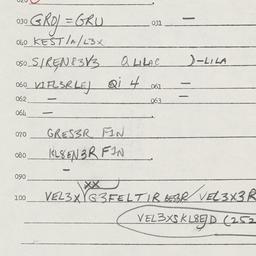 030 GROJ = GRU 031 —
040 KEST/A/L3X
050 SIRENE3V3 Q LILAC )-LILA
060 VIFL3RLEJ QI 4 061 —
062 — 063 —
064 —
070 GRES3R FIN
080 KL8EN3R FIN
090 —
XX
100 VEL3X G3FELTIR / VEL3X3R
VEL3XSKL8EJD (252